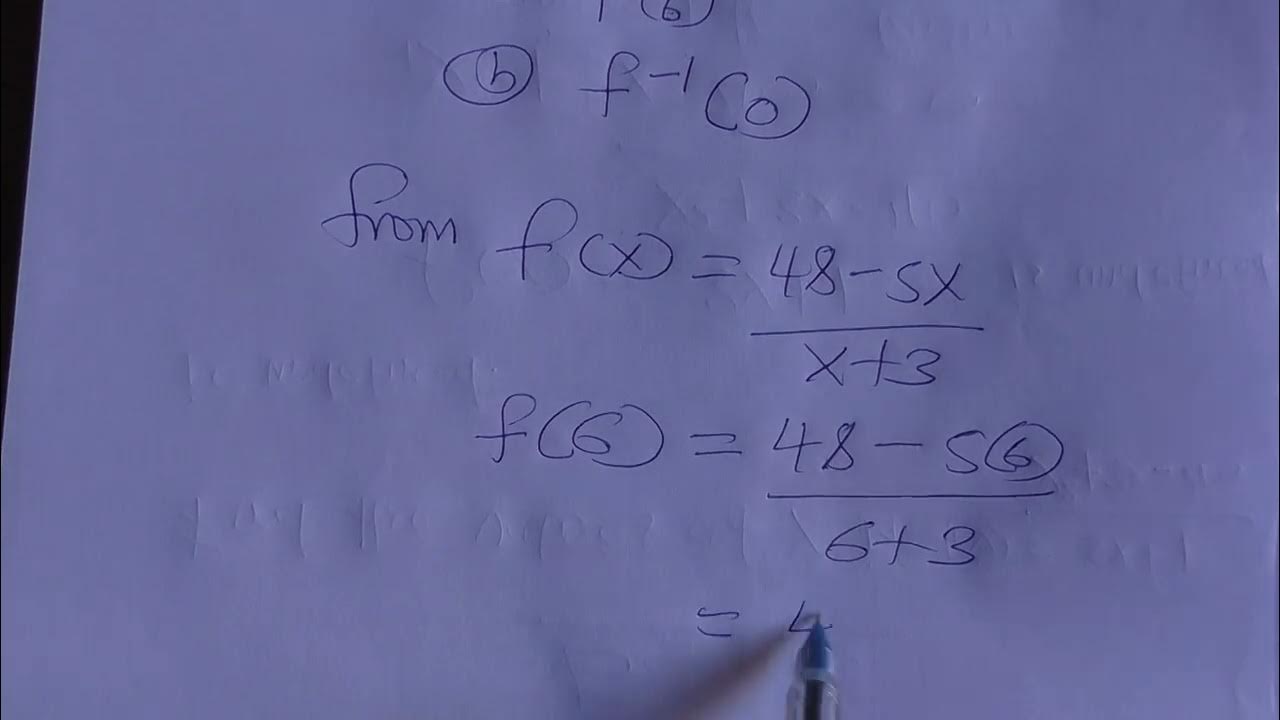 (6)
(b) f⁻¹(0)
from f(x) = 48-5x
x+3
f(6) = 48-5(6)
6+3
= 4